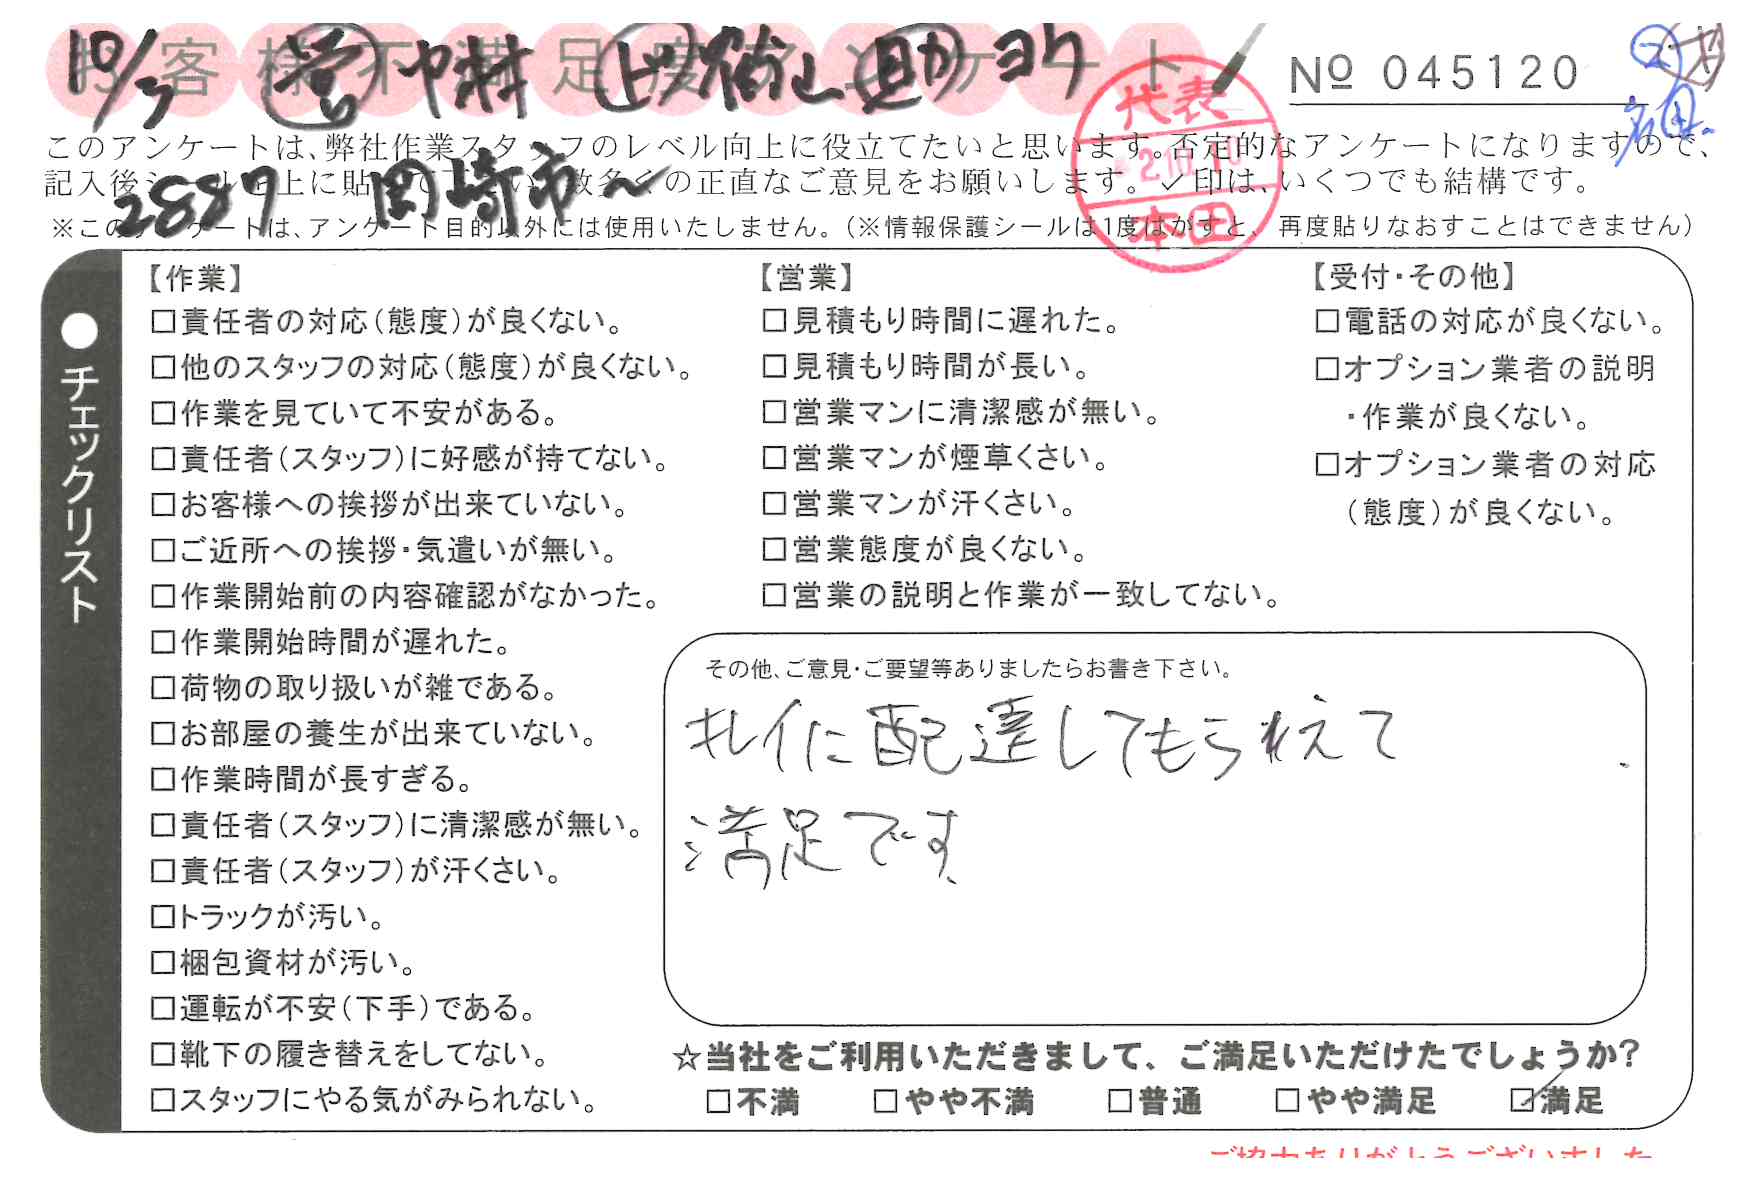 お客様不満足度アンケート
10/3 営 中村 上 街山 助 ヨク
Nº 045120
このアンケートは、弊社作業スタッフのレベル向上に役立てたいと思います。否定的なアンケートになりますので、
記入後シールを上に貼って下さい。数多くの正直なご意見をお願いします。✓印は、いくつでも結構です。
2887 岡崎市〜
※このアンケートは、アンケート目的以外には使用いたしません。(※情報保護シールは1度はがすと、再度貼りなおすことはできません)
代表
2.10.10
本田
●チェックリスト
【作業】
□責任者の対応(態度)が良くない。
□他のスタッフの対応(態度)が良くない。
□作業を見ていて不安がある。
□責任者(スタッフ)に好感が持てない。
□お客様への挨拶が出来ていない。
□ご近所への挨拶・気遣いが無い。
□作業開始前の内容確認がなかった。
□作業開始時間が遅れた。
□荷物の取り扱いが雑である。
□お部屋の養生が出来ていない。
□作業時間が長すぎる。
□責任者(スタッフ)に清潔感が無い。
□責任者(スタッフ)が汗くさい。
□トラックが汚い。
□梱包資材が汚い。
□運転が不安(下手)である。
□靴下の履き替えをしてない。
□スタッフにやる気がみられない。
【営業】
□見積もり時間に遅れた。
□見積もり時間が長い。
□営業マンに清潔感が無い。
□営業マンが煙草くさい。
□営業マンが汗くさい。
□営業態度が良くない。
□営業の説明と作業が一致してない。
【受付・その他】
□電話の対応が良くない。
□オプション業者の説明
・作業が良くない。
□オプション業者の対応
(態度)が良くない。
その他、ご意見・ご要望等ありましたらお書き下さい。
キレイに配達してもらられえて
満足です
☆当社をご利用いただきまして、ご満足いただけたでしょうか?
□不満 □やや不満 □普通 □やや満足 ☑満足
ご協力ありがとうございました